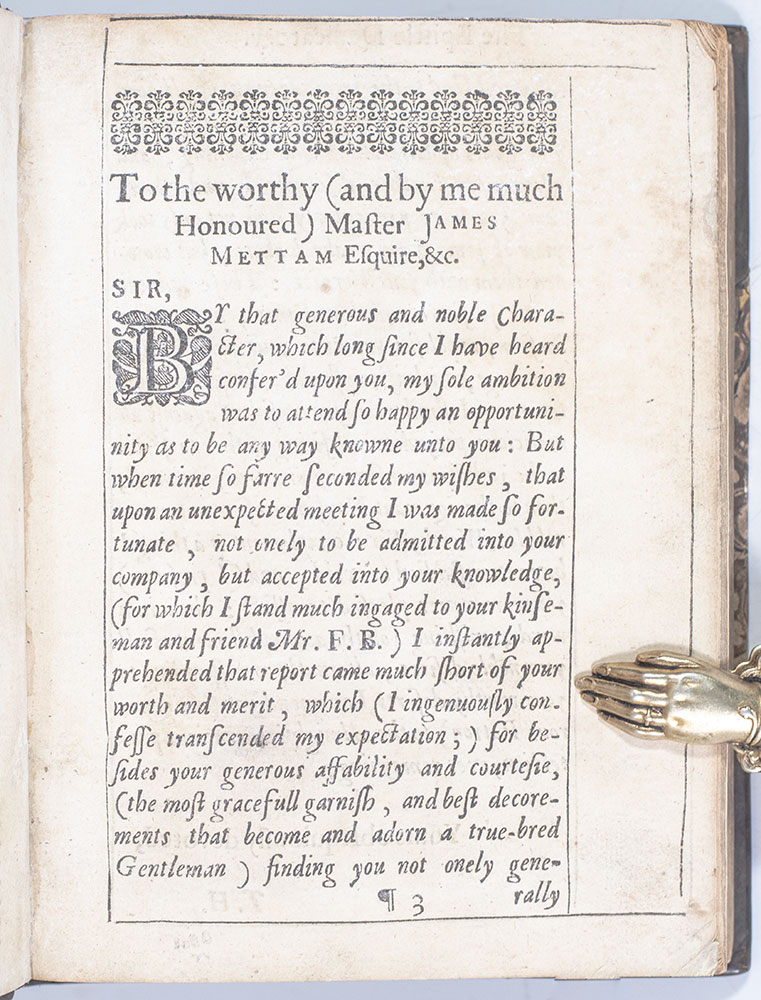 To the worthy (and by me much
Honoured) Maſter JAMES
METTAM Eſquire,&c.
SIR,
BY that generous and noble Chara-
cter, which long ſince I have heard
confer'd upon you, my ſole ambition
was to attend ſo happy an opportuni-
nity as to be any way knowne unto you: But
when time ſo farre ſeconded my wiſhes, that
upon an unexpected meeting I was made ſo for-
tunate, not onely to be admitted into your
company, but accepted into your knowledge,
(for which I ſtand much ingaged to your kinſe-
man and friend Mr. F. B.) I inſtantly ap-
prehended that report came much ſhort of your
worth and merit, which (I ingenuouſly con-
feſſe tranſcended my expectation;) for be-
ſides your generous affability and courteſie,
(the moſt gracefull garniſh, and beſt decore-
ments that become and adorn a true-bred
Gentleman) finding you not onely gene-
rally
¶ 3